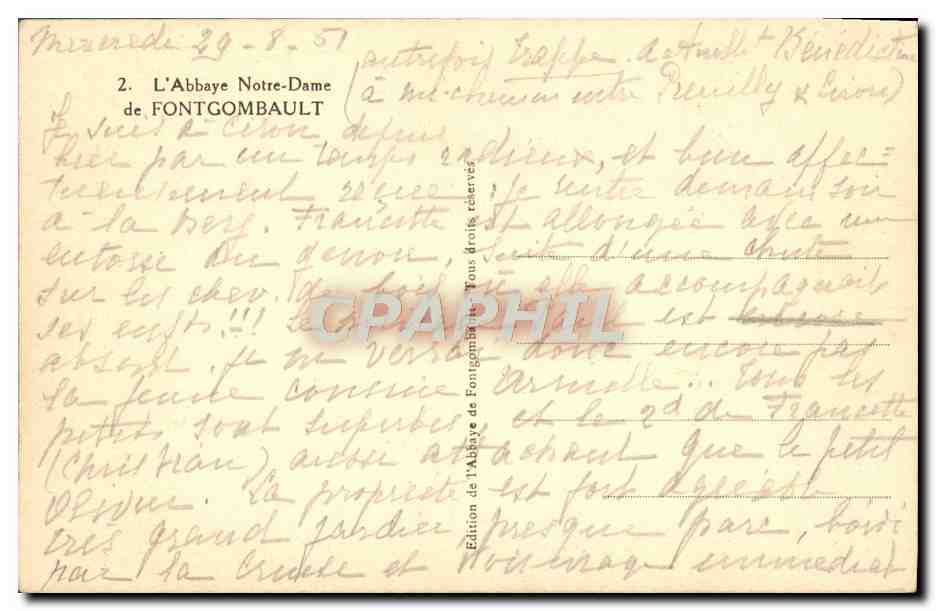 Mercredi 29-8-51
autrefois trappe. actuellt Bénédictine
(à mi-chemin entre Preuilly &
2. L'Abbaye Notre-Dame
de FONTGOMBAULT
Je suis à Ciron depuis
hier par un temps radieux, et bien affec=
tueusement reçue. Je rentre demain soir
à la Berj. Francette est allongée avec une
entorse du genou, suit d'une chute
sur les chev. de bois où elle accompagnait
ses enfts!!! est
absent. Je ne verrai donc encore pas
la jeune cousine Armelle.. Tous les
petits sont superbes et le 2d de Francette
(Christian) aussi attachant que le petit
Olivier. La propriété est fort agréable
très grand jardin, presque parc, bordé
par la Creuse et voisinage immédiat
Edition de l'Abbaye de Fontgombault - Tous droits réservés
CPAPHIL